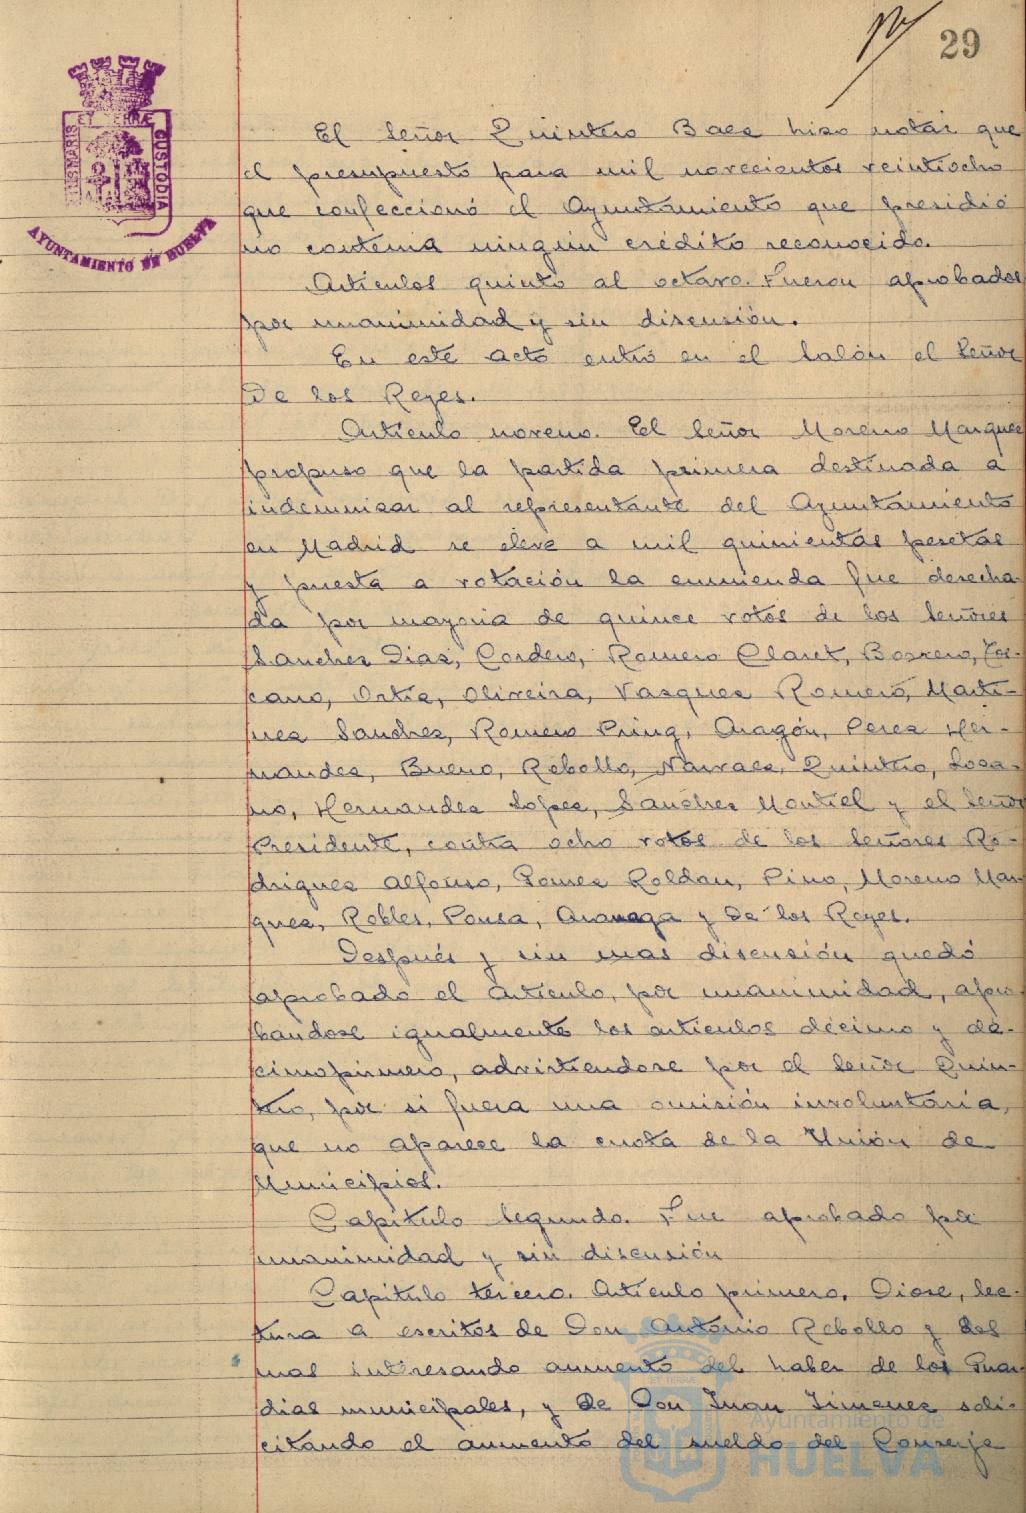 29
ET TERRÆ
CUSTODIA
AYUNTAMIENTO DE HUELVA
El Señor Quintero Baez hizo notar que
el presupuesto para mil novecientos veintiocho
que confeccionó el Ayuntamiento que presidió
no contenia ningún crédito reconocido.
Articulos quinto al octavo. Fueron aprobados
por unanimidad y sin discusión.
En este acto entró en el Salón el Señor
De los Reyes.
Articulo noveno. El Señor Moreno Marquez
propuso que la partida primera destinada a
indemnizar al representante del Ayuntamiento
en Madrid se eleve a mil quinientas pesetas
y puesta a votación la enmienda fue desecha-
da por mayoria de quince votos de los Señores
Sanchez Diaz, Cordero, Romero Claret, Borrero, Tos-
cano, Ortiz, Oliveira, Vazquez Romero, Marti-
nez Sanchez, Romero Pring, Aragón, Perez Her-
nandez, Bueno, Rebollo, Narvaez, Quintero, Loza-
no, Hernandez Lopez, Sanchez Montiel y el Señor
Presidente, contra ocho votos de los Señores Ro-
driguez Alfonso, Gomez Roldan, Pino, Moreno Mar
quez, Robles, Ponsa, Aranega y De los Reyes.
Después y sin mas discusión quedó
aprobado el articulo, por unanimidad, apro-
bandose igualmente los articulos décimo y dé-
cimoprimero, advirtiendose por el Señor Quin-
tero, por si fuera una omisión involuntaria,
que no aparece la cuota de la Unión de
Municipios.
Capitulo Segundo. Fue aprobado por
unanimidad y sin discusión
Capitulo tercero. Articulo primero. Diose, lec-
tura a escritos de Don Antonio Rebollo y dos
mas interesando aumento del haber de los Guar-
dias municipales, y de Don Juan Jimenez soli-
citando el aumento del sueldo del Conserje
Ayuntamiento de
HUELVA